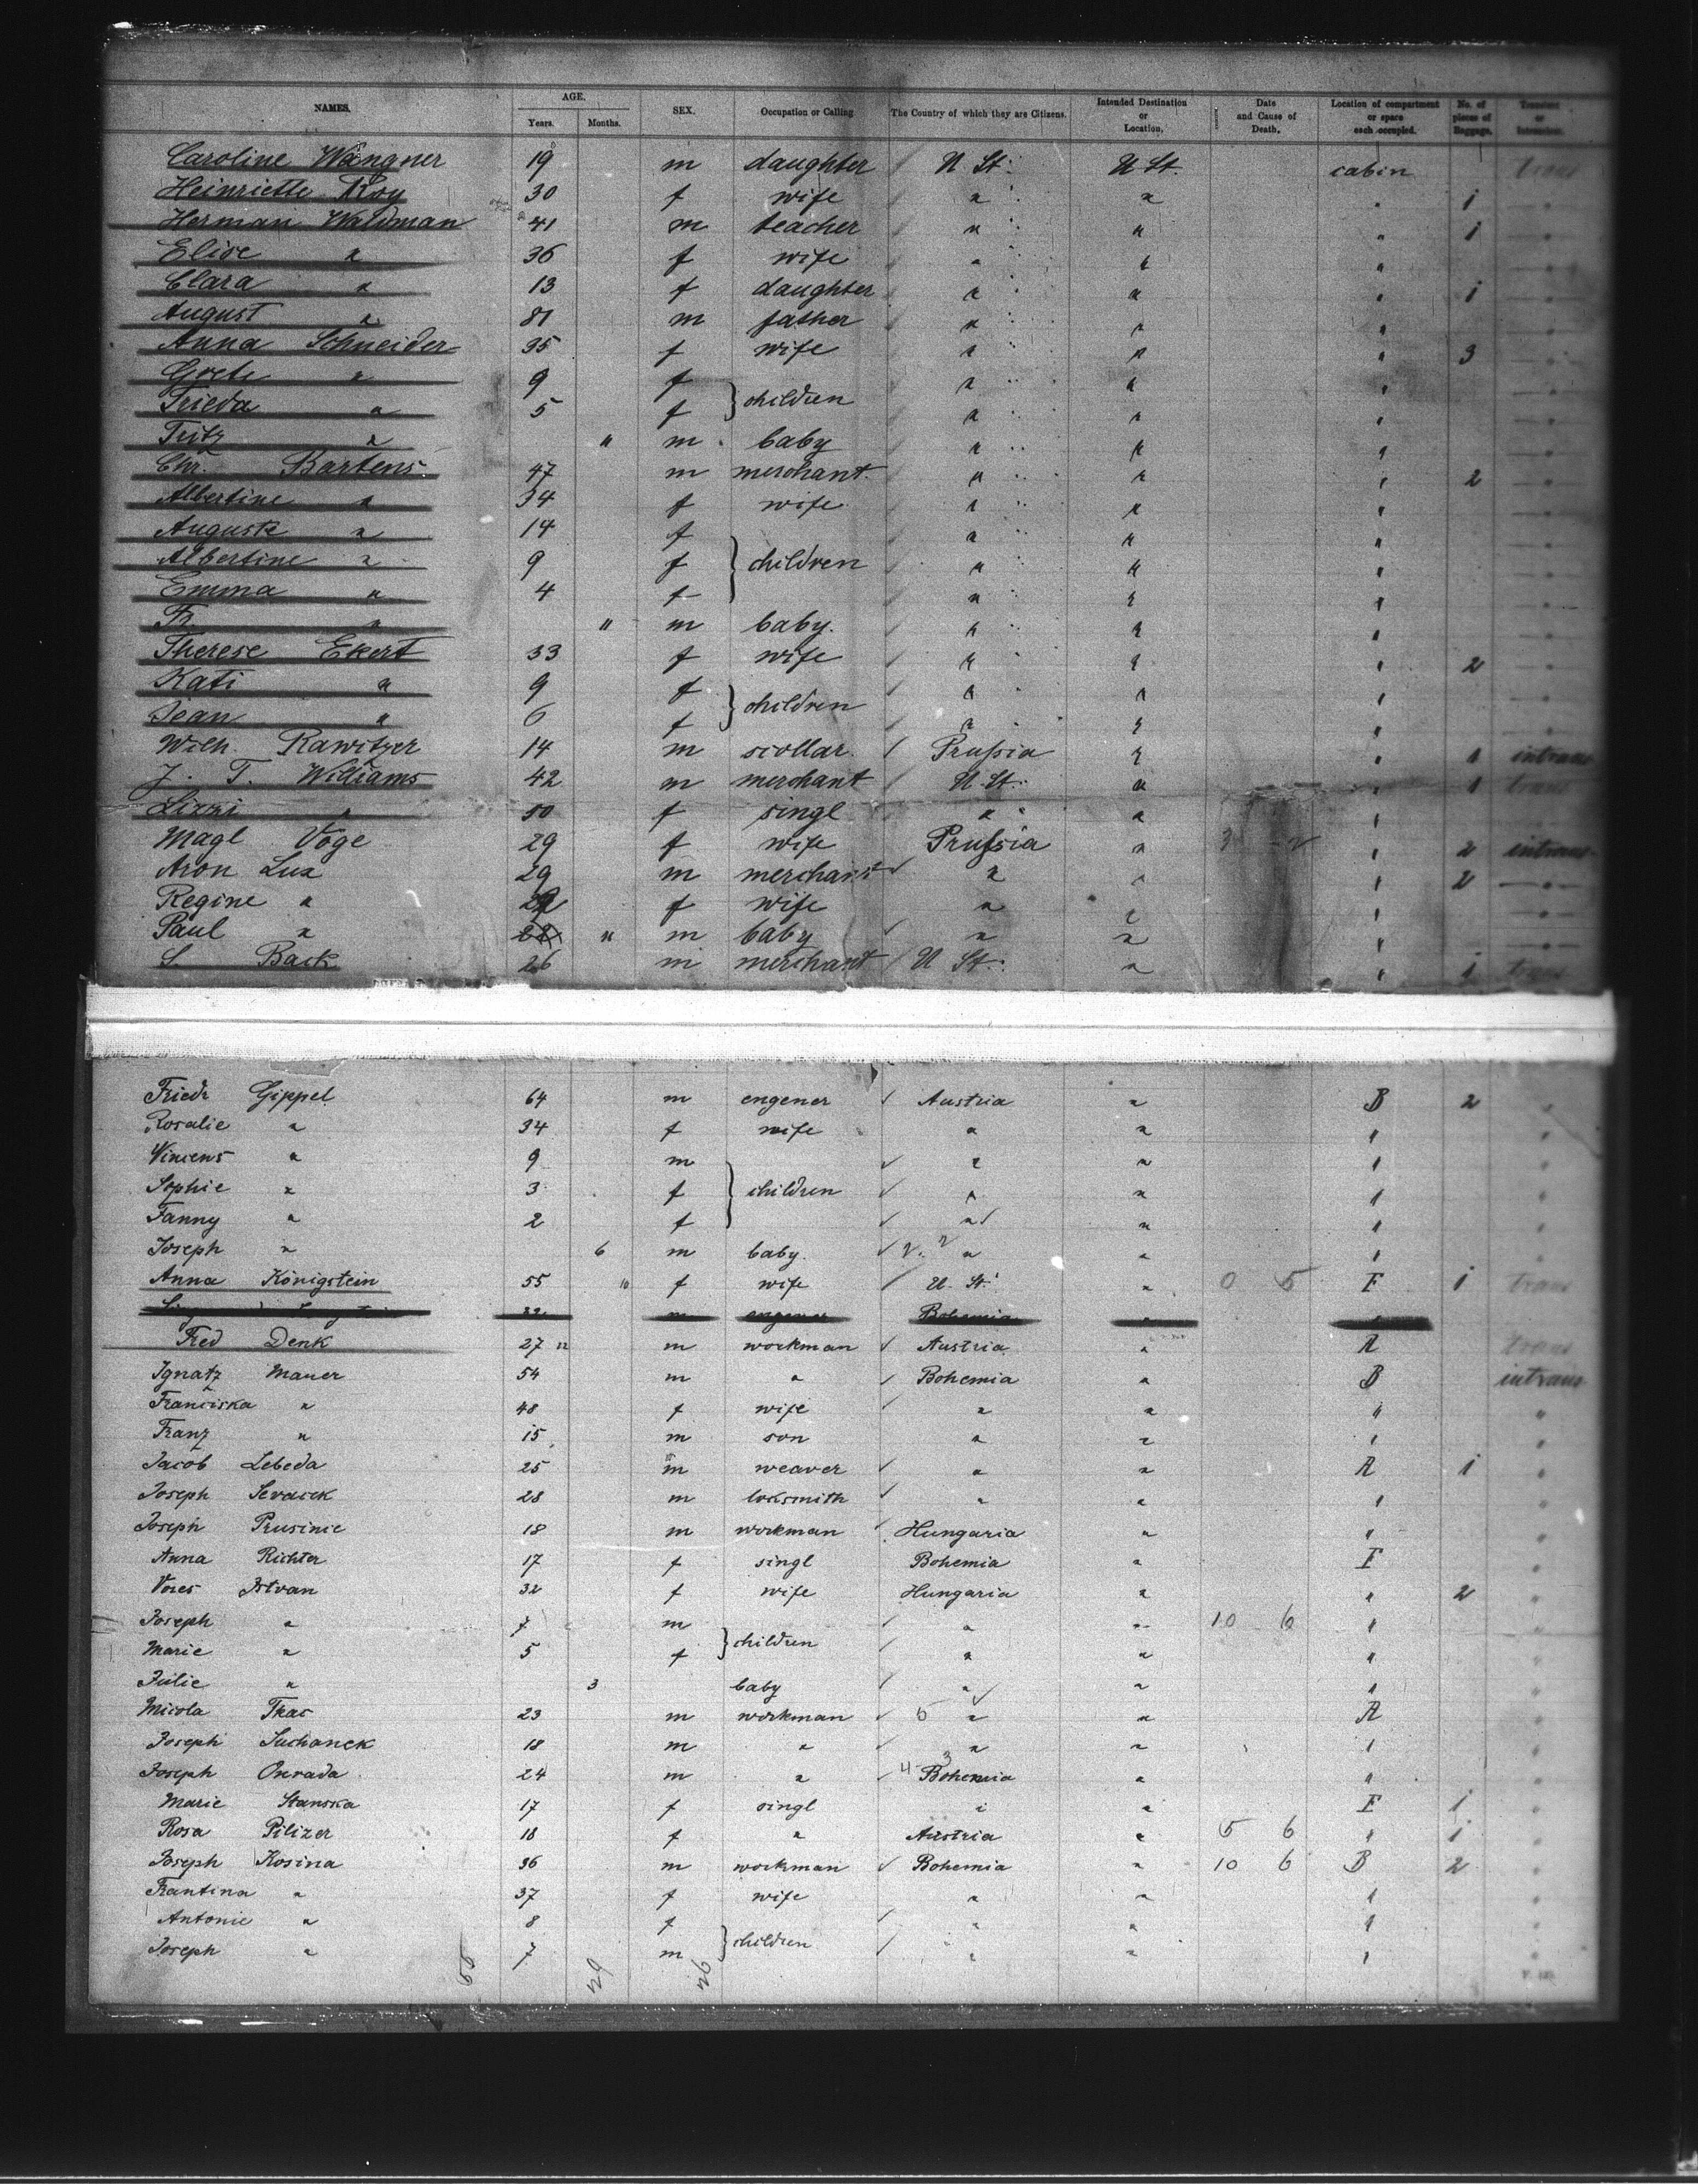 NAMES. AGE. Years. Months. SEX. Occupation or Calling The Country of which they are Citizens. Intended Destination or Location. Date and Cause of Death. Location of compartment or space each occupied. No. of pieces of Baggage. Transient or
Caroline Wangner 19 m daughter U St. U St. cabin trans
Heinriette Roy 30 f wife " " " 1 "
Herman Waldman 41 m teacher " " " 1 "
Elise " 36 f wife " " " "
Clara " 13 f daughter " " " 1 "
August " 81 m father " " " "
Anna Schneider 35 f wife " " " 3 "
Grete " 9 f } children " " " "
Frieda " 5 f " " " "
Fritz " 11 m baby " " " "
Chr. Bartens 47 m merchant " " " 2 "
Albertine " 34 f wife " " " "
Auguste " 14 f } children " " " "
Albertine " 9 f " " " "
Emma " 4 f " " " "
Fr. " 11 m baby. " " " "
Therese Ekert 33 f wife " " " 2 "
Kati " 9 f } children " " " "
Jean " 6 f " " " "
Wilh. Rawitzer 14 m scollar. Prussia " " 1 intrans
J. T. Williams 42 m merchant U. St. " " 1 trans
Lizzi " 50 f singl " " "
Magl Voge 29 f wife Prussia " " 2 intrans
Aron Lux 29 m merchant " " " 2 "
Regine " f wife " " " "
Paul " 11 m baby " " "
S. Back 26 m merchant U St. " " 1 trans
Friedr Gippel 64 m engener Austria " B 2 "
Rosalie " 34 f wife " " " "
Viniens " 9 m } children " " " "
Sophie " 3 f " " " "
Fanny " 2 f " " " "
Joseph " 6 m baby. " " " "
Anna Königstein 55 10 f wife U. St. " 0 5 F 1 trans
32 m engener Bohemia "
Fred Denk 27 m workman Austria " A trans
Ignatz Mauer 54 m " Bohemia " B intrans
Franciska " 48 f wife " " " "
Franz " 15 m son " " " "
Jacob Lebeda 25 m weaver " " A 1 "
Joseph Sevdcek 28 m locksmith " " " "
Joseph Prusinic 18 m workman Hungaria " " "
Anna Richter 17 f singl Bohemia " F "
Vores Istvan 32 f wife Hungaria " " 2 "
Joseph " 7 m } children " " 10 6 " "
Marie " 5 f " " " "
Julie " 3 baby " " " "
Micola Tkac 23 m workman 5 " " A "
Joseph Suchanek 18 m " " " " "
Joseph Onrada 24 m " 4 3 Bohemia " " "
Marie Stanska 17 f singl " " F 1 "
Rosa Pilizer 18 f " Austria " 5 6 " 1 "
Joseph Kosina 36 m workman Bohemia " 10 6 B 2 "
Frantina " 37 f wife " " " "
Antonie " 8 f } children " " " "
Joseph " 7 m " " " "
55 29 26